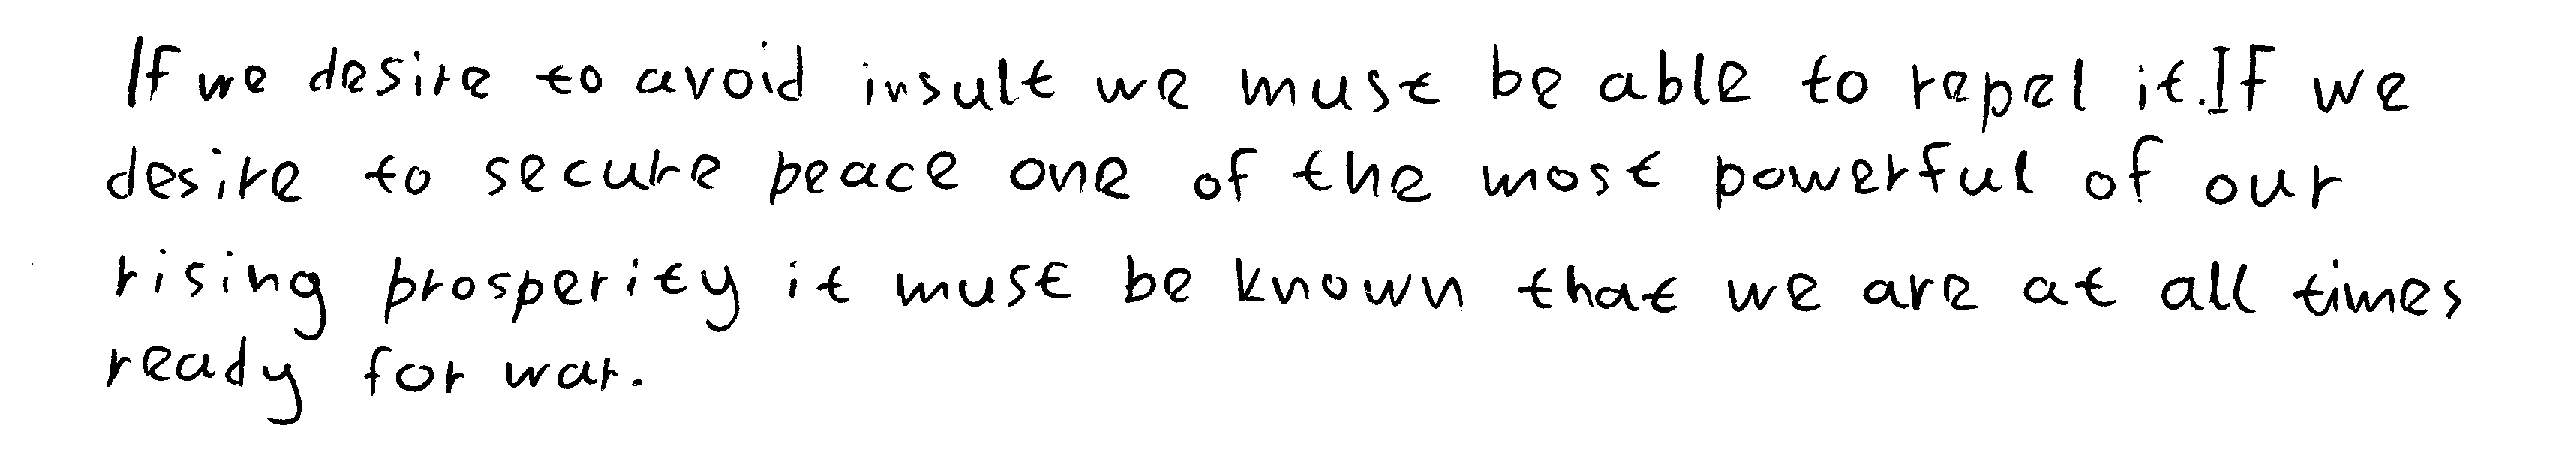 If we desire to avoid insult we must be able to repel it.If we
desire to secure peace one of the most powerful of our
rising prosperity it must be known that we are at all times
ready for war.